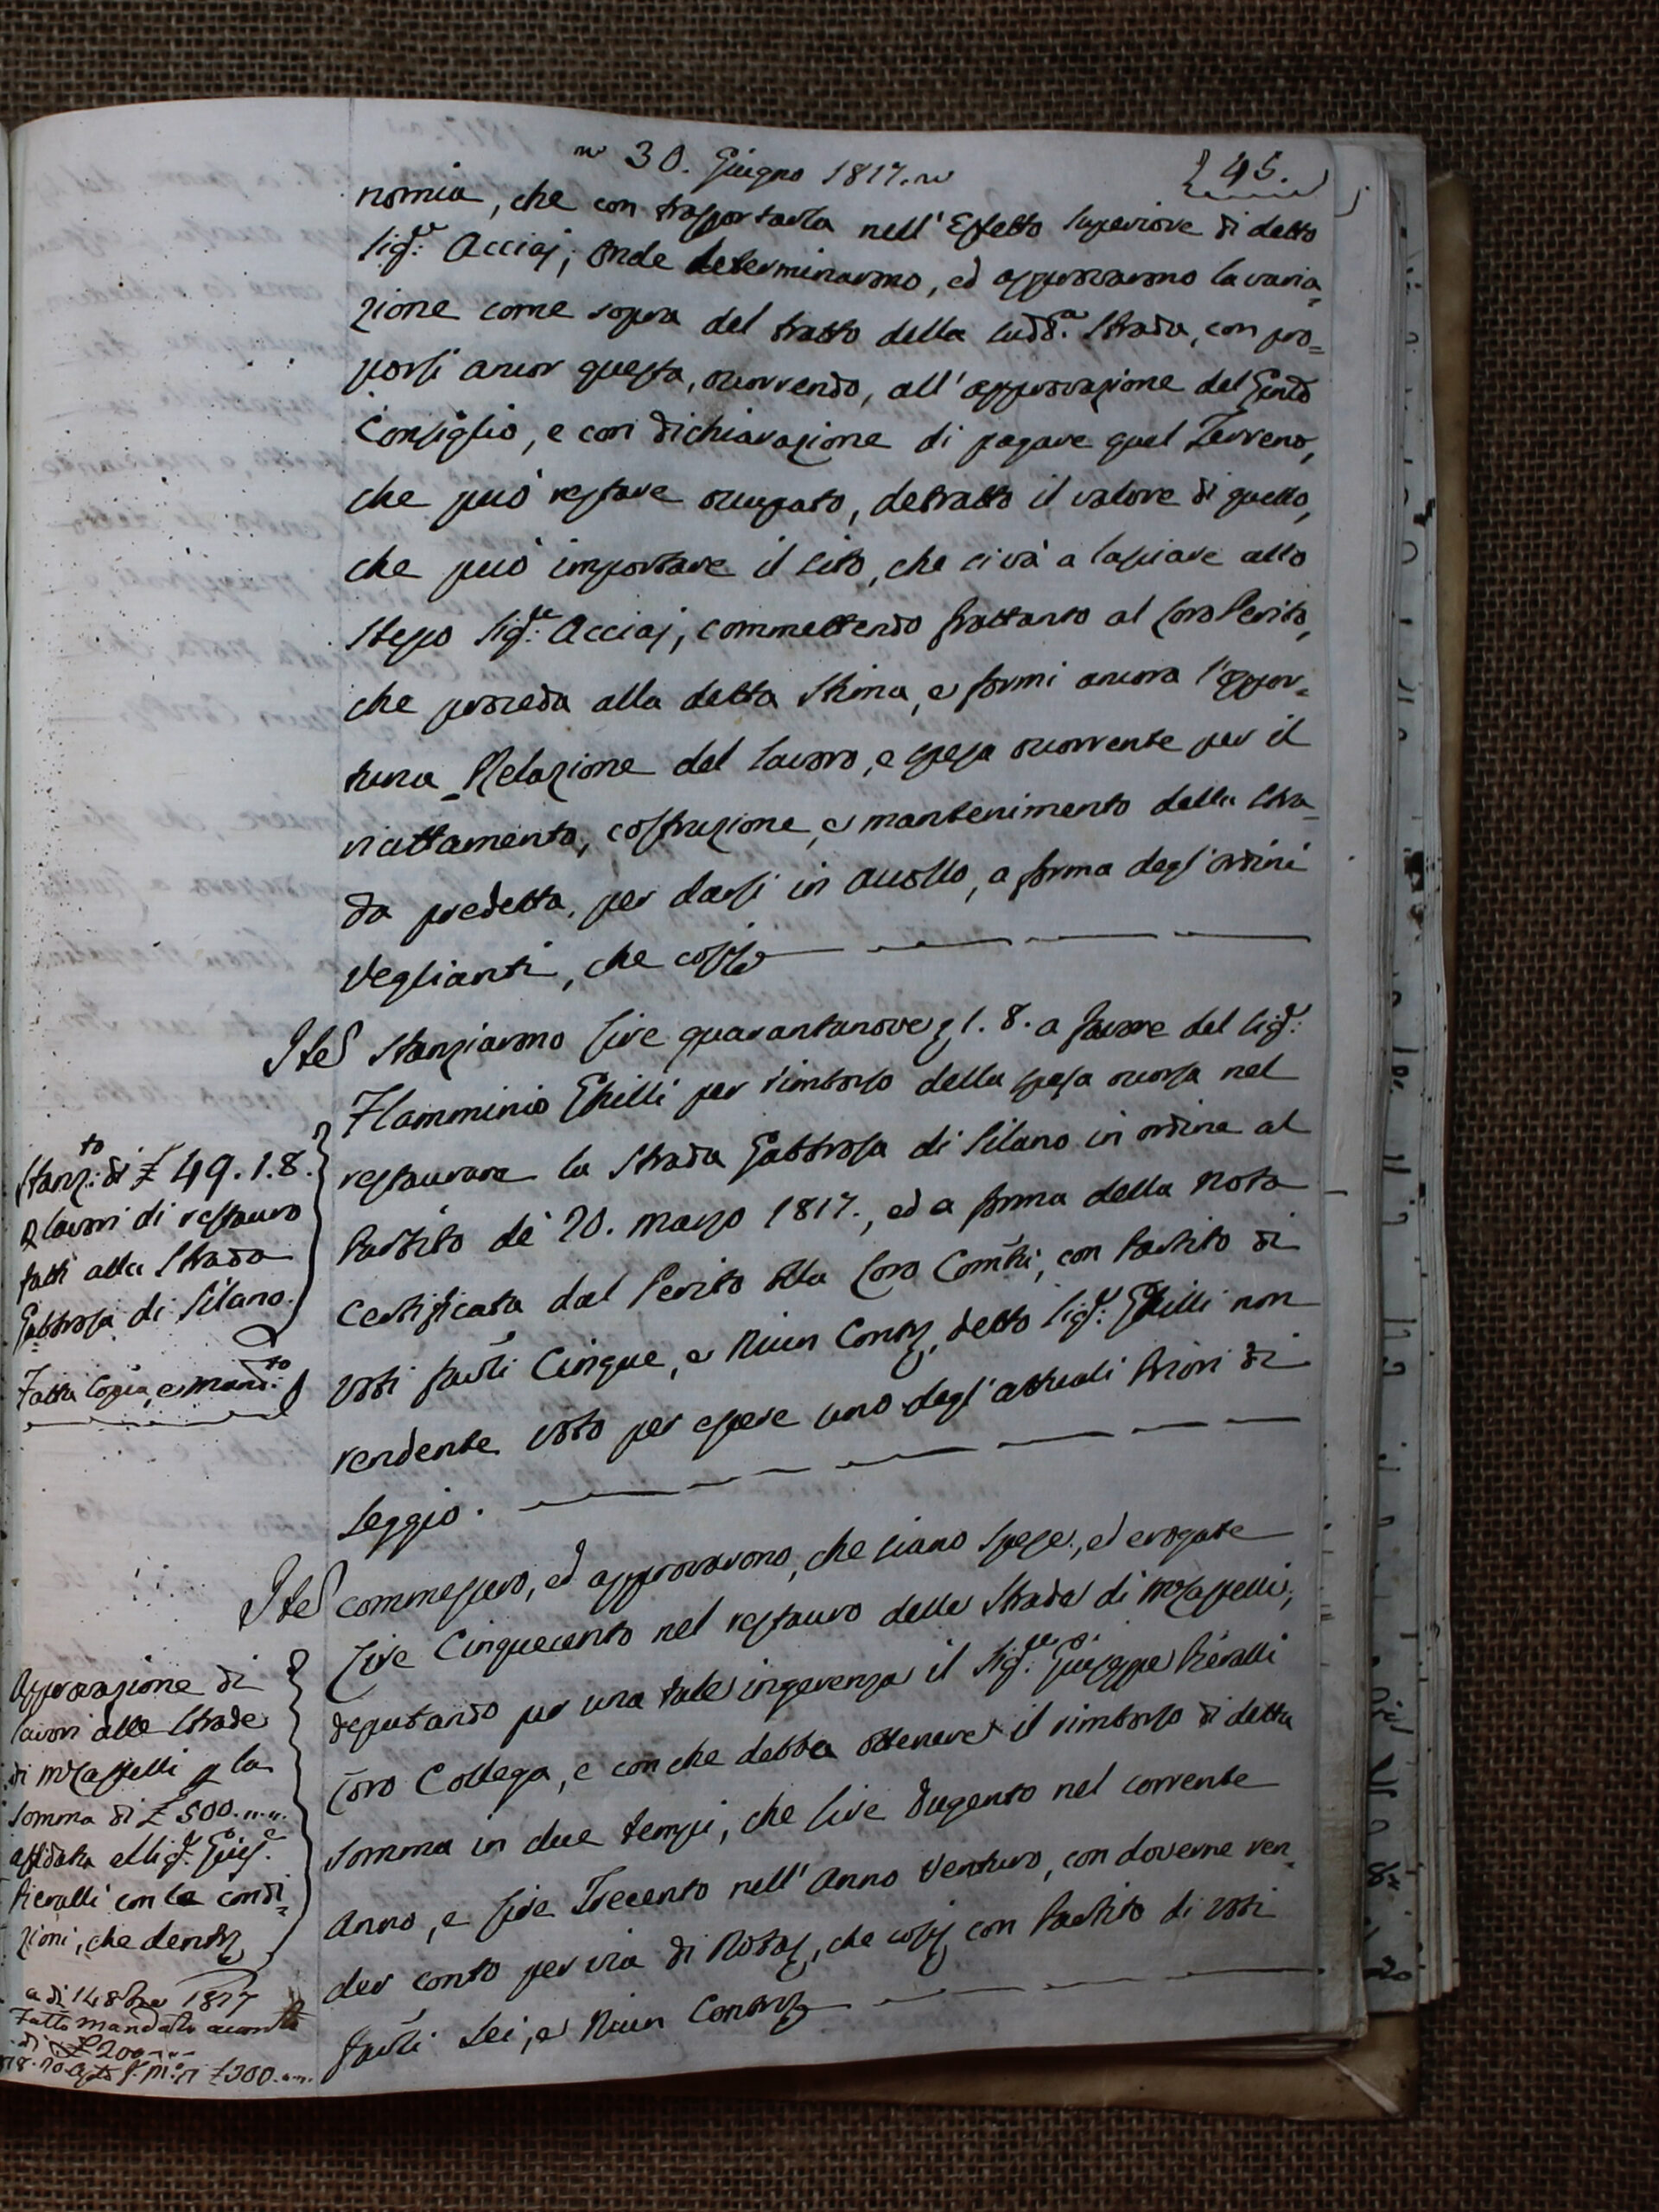 30. Giugno 1817.
45.
nomia, che con trasportarla nell'Effetto Superiore di detto
Sig.re Acciaj; Onde determinarono, ed approvarono la varia=
zione come sopra del tratto della sudd.a Strada, con pro=
porsi ancor questa, occorrendo, all'approvazione del Genle
Consiglio, e con dichiarazione di pagare quel Terreno,
che può restare occupato, detratto il valore di quello,
che può importare il sito, che si và a lasciare allo
Stesso Sig.re Acciaj, commettendo frattanto al Loro Perito,
che proceda alla detta Stima, e formi ancora l'oppor=
tuna Relazione del lavoro, e spesa occorrente per il
riattamento, costruzione, e mantenimento della Stra=
da predetta, per darsi in accollo, a forma degl'ordini
Veglianti, che così
Ite Stanziarono Lire quarantanove, 1. 8. a favore del Sig.re
Flamminio Ghilli per rimborso della spesa occorsa nel
restaurare la Strada Gabbrosa di Silano in ordine al
Partito de' 20. marzo 1817., ed a forma della Nota
Certificata dal Perito della Loro Comtà, con Partito di
Voti favli Cinque, e Niun Contro, detto Sig.re Ghilli non
rendente Voto per essere uno degl'attuali Priori di
Seggio.
Stanz.to di £ 49. 1. 8.
p lavori di restauro
fatti alla Strada
Gabbrosa di Silano.
Fatta Copia, e mand.to
Ite commessero, ed approvarono, che siano Spese, ed erogate
Lire Cinquecento nel restauro delle Strade di mCastelli,
deputando per una tale ingerenza il Sig.re Giuseppe Pieralli
Loro Collega, e con che debba ottenere il rimborso di detta
Somma in due tempi, che Lire dugento nel corrente
Anno, e Lire Trecento nell'Anno Venturo, con doverne ren=
der conto per via di Nota, che così con Partito di Voti
favli Sei, e Niun Contro
Approvazione di
lavori alle Strade
di mCastelli p la
Somma di £ 500.
affidata al Sig.re Gius.e
Pieralli con le condi=
zioni, che dentro
a dì 14 8bre 1817
Fatto mandato aconto
di £ 200
£ 300.